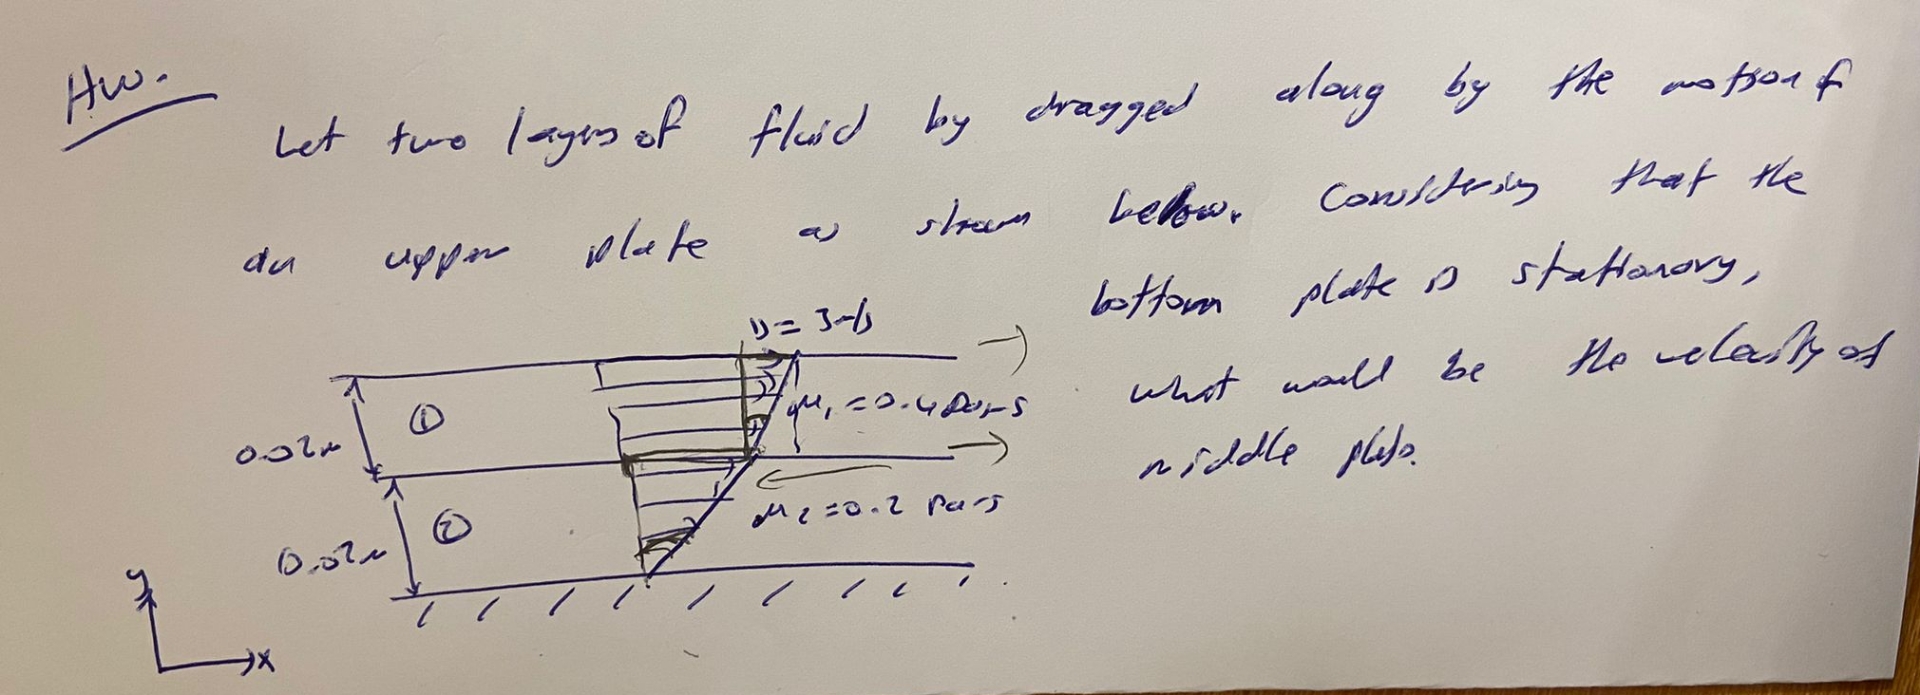 HW.
Let two layers of fluid by dragged along by the motion of
an upper plate as shown below. Considering that the
bottom plate is stationary,
what would be the velocity of
middle plate.
U = 3 m/s
①
0.02m
μ₁ = 0.4 Pa-s
②
0.02m
μ₂ = 0.2 Pa-s
y
x